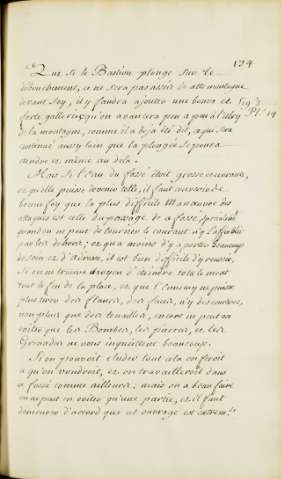 134
Que si le Bastion plonge sur le
débouchement, ce ne sera pas
devant soy, il y faudra ajouter une bonne et
forte gallerie qu'on avancera peu a peu a l'aide
de la montagne, comme il a déja été dit, ce qui sera
continué aussy loin que la plongée se pourra
étendre et même au dela.
fig. 3.
Pl. 19
Mais si l'eau du fossé étoit grosse et courante,
ou qu'elle puisse devenir telle, il faut
que la plus difficile manœuvre des
attaques est celle du passage de ce fossé,
quand on ne peut détourner le courant n'y l'affoiblir
par les dehors, et qu'a moins d'y apporter beaucoup
de soin et d'adresse, il est bien difficile d'y reussir.
Si on ne trouve moyen d'éteindre tout le
tout le feu de la place, et que l'ennemy ne puisse
plus tirer des flancs, des faces, n'y des courtines,
non plus que des tenailles, encore ne peut on
éviter que les Bombes, les pierres, et les
Grenades ne vous inquiettent beaucoup.
Si on pouvoit eluder tout cela on feroit
ce qu'on voudroit, et on travailleroit dans
ce fossé comme ailleurs: mais on a beau faire
on ne peut en éviter qu'une partie, et il faut
demeurer d'accord que cet ouvrage est